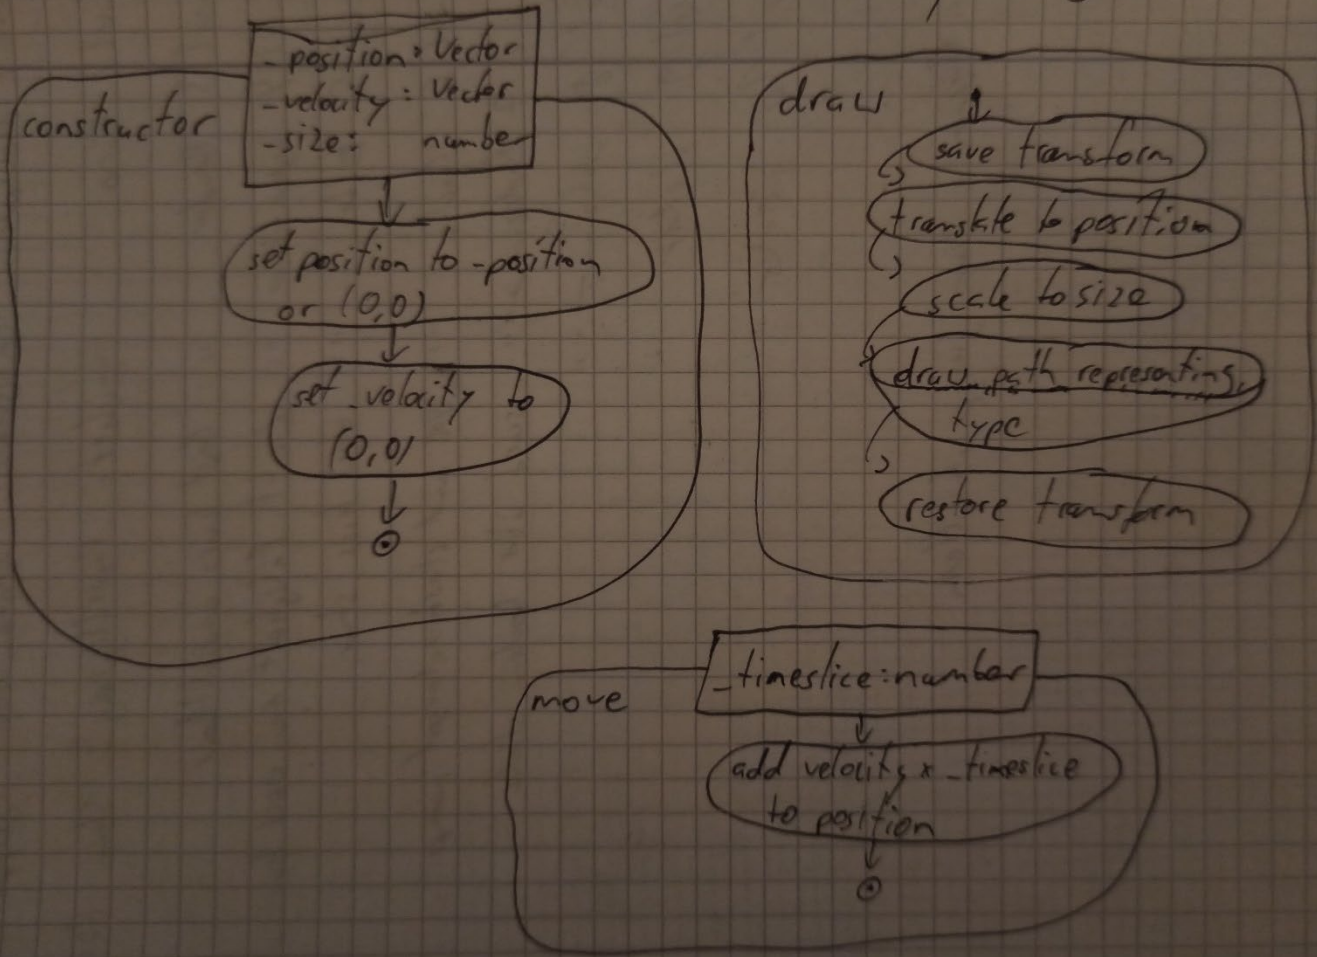 constructor
_position: Vector
_velocity: Vector
_size: number
set position to _position
or (0,0)
set _velocity to
(0,0)
draw
save transform
translate to position
scale to size
draw path representing
type
restore transform
_timeslice: number
move
add velocity x _timeslice
to position